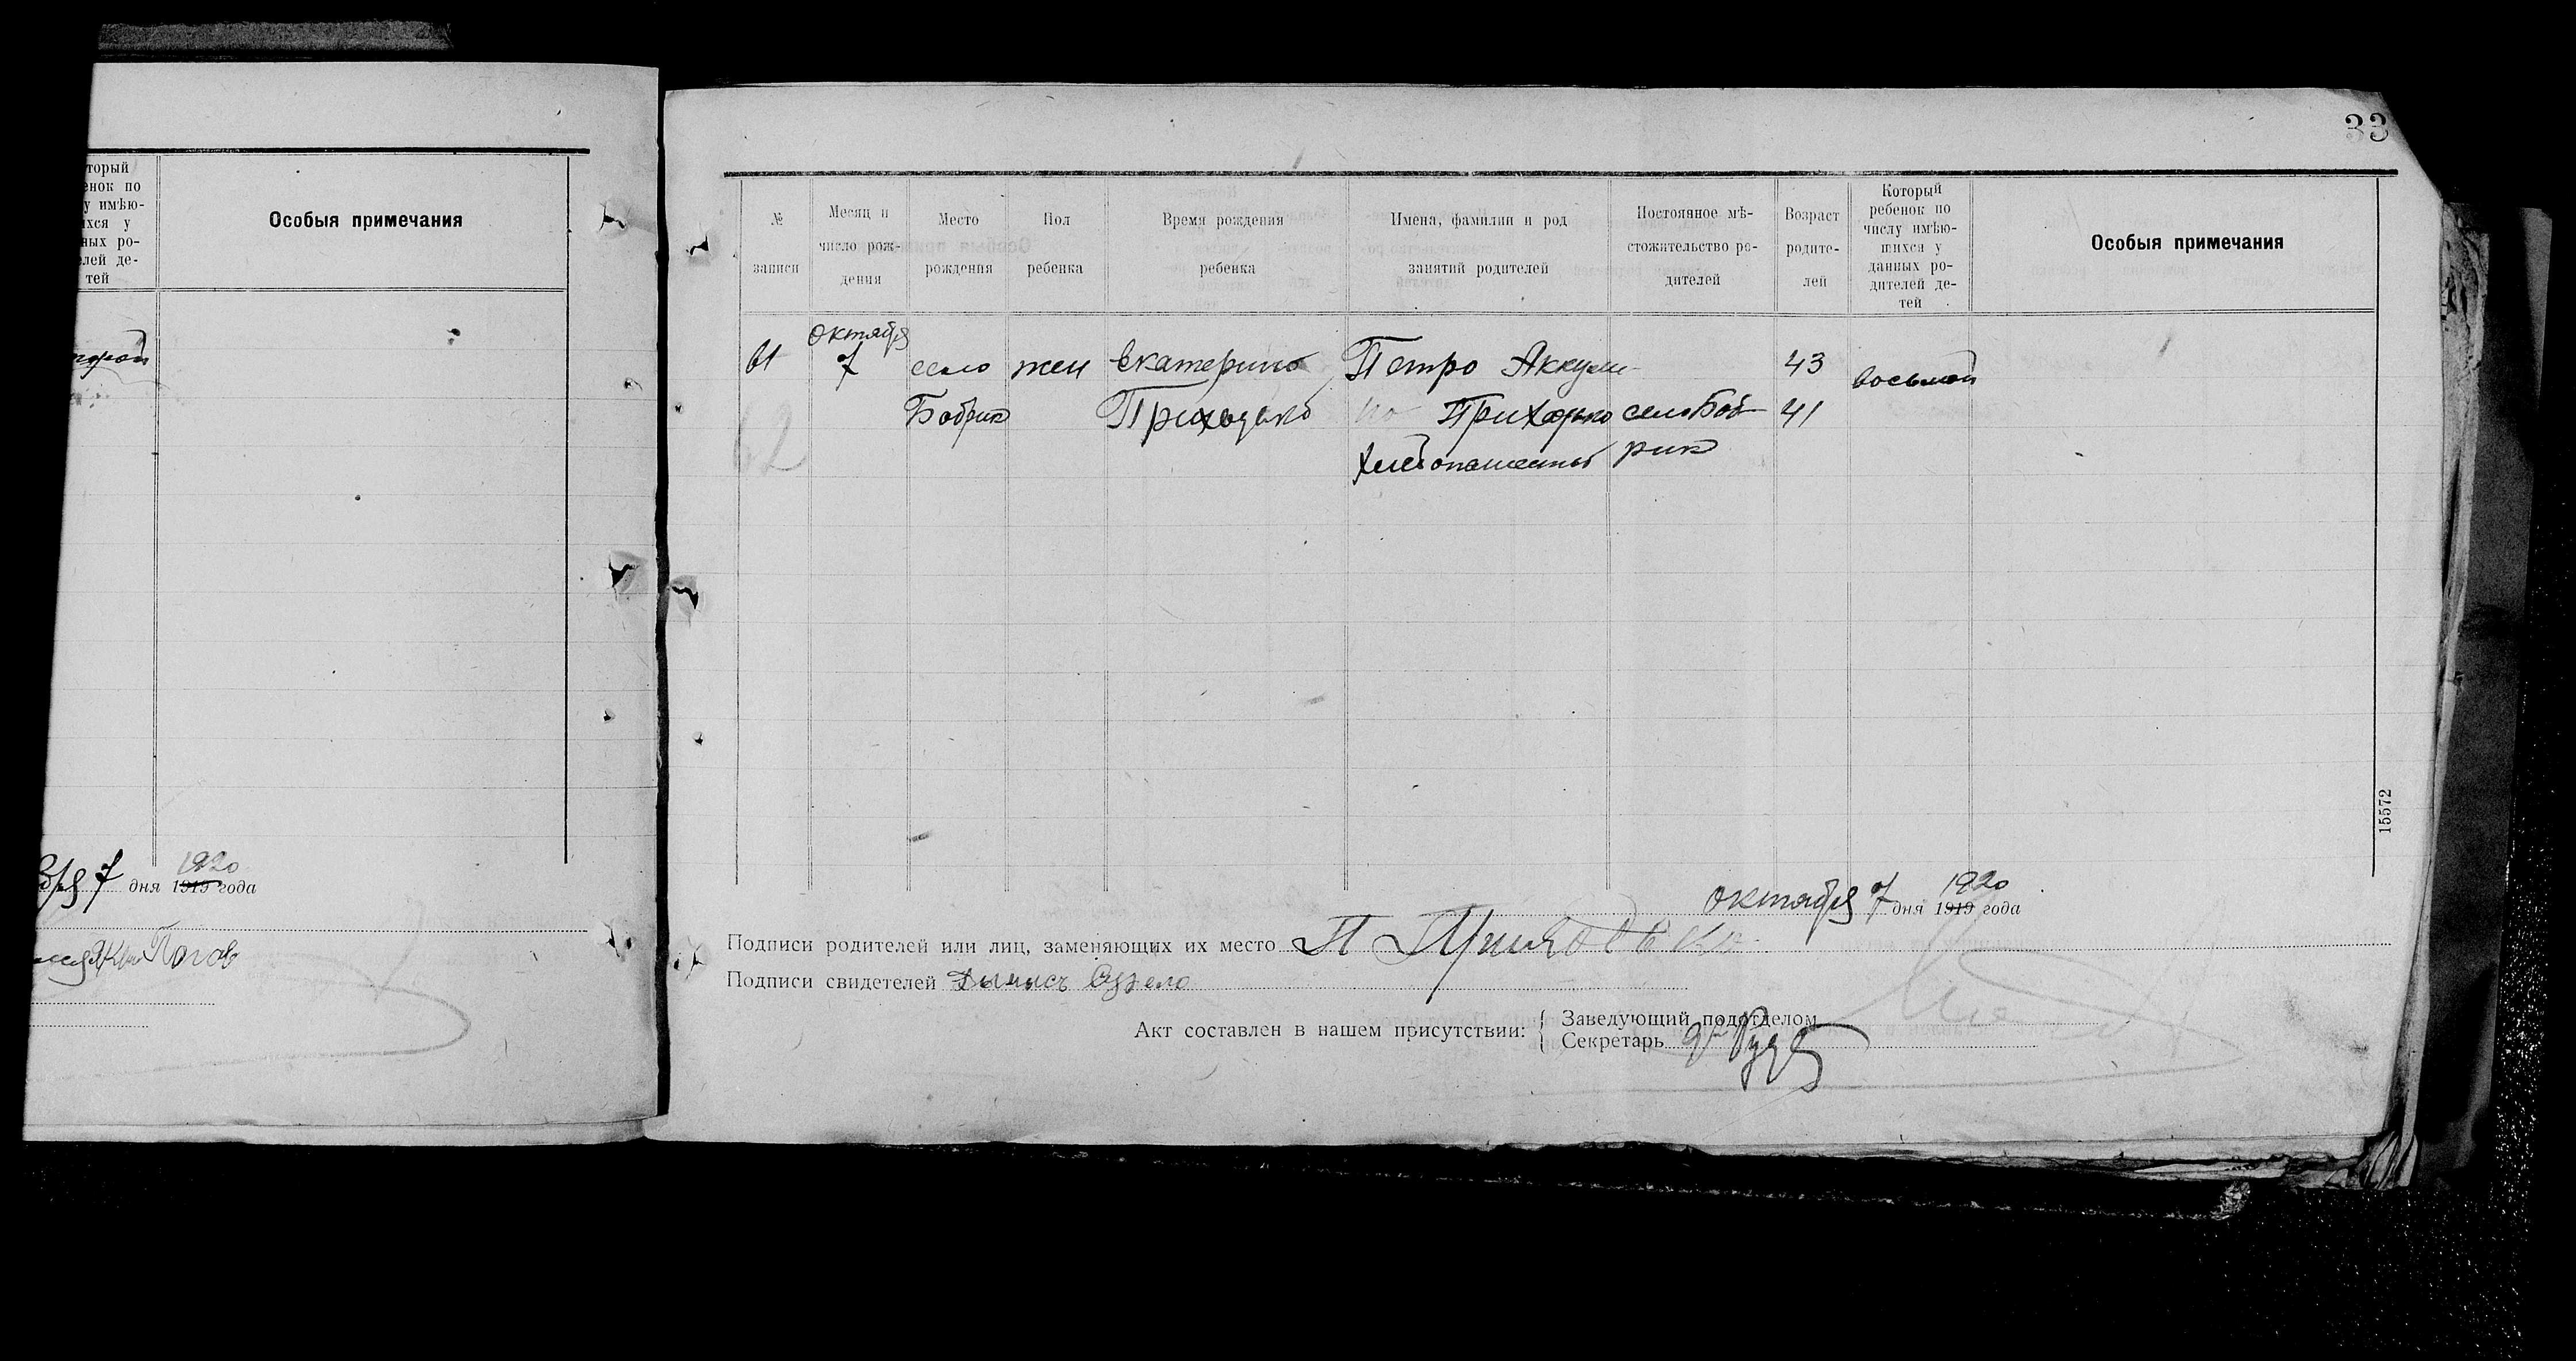 торый
енок по
у имѣю-
ихся у
ных ро-
елей де-
тей
Особыя примечания
7 дня 1919 года
1920
33
№
записи
Месяц и
число рож-
дения
Место
рождения
Пол
ребенка
Время рождения
ребенка
Имена, фамилии и род
занятий родителей
Постоянное мѣ-
стожительство ро-
дителей
Возраст
родите-
лей
Который
ребенок по
числу имѣю-
шихся у
данных ро-
дителей де-
тей
Особыя примечания
61
62
октября
7
село
Бобрик
жен
Екатерина
Приходько
Петро Аккули-
на Приходько
хлебопашенны
село Боб-
рик
43
41
восьмой
15572
октября 7 дня 1919 года
1920
Подписи родителей или лиц, заменяющих их место П Приходько
Подписи свидетелей
Акт составлен в нашем присутствии:
Заведующий подотделом
Секретарь